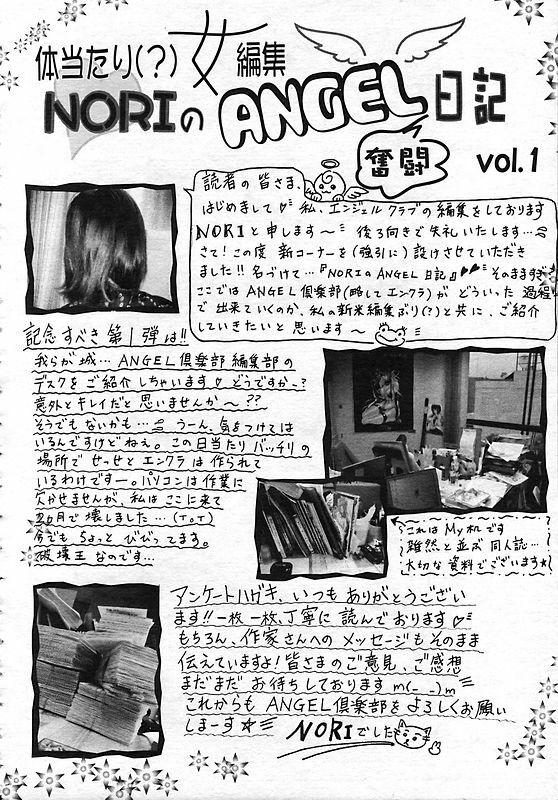 体当たり(?)女編集
NORIのANGEL日記
奮闘
vol.1
読者の皆さま、
はじめまして♡ 私、エンジェルクラブの編集をしております
NORIと申します〜 後ろ向きで失礼いたします…
さて!この度 新コーナーを(強引に)設けさせていただき
ました!! 名づけて…『NORIのANGEL日記』♥♥ そのまますぎ
ここではANGEL倶楽部(略してエンクラ)が どういった過程
で出来ていくのか、私の新米編集ぶり(?)と共に、ご紹介
していきたいと思います〜
記念すべき第1弾は!!
我らが城… ANGEL倶楽部編集部の
デスクをご紹介しちゃいます♡ どうですか〜?
意外とキレイだと思いませんか〜??
そうでもないかも… うーん、気をつけては
いるんですけどねぇ。この日当たりバッチリの
場所でせっせとエンクラは作られて
いるわけですー。パソコンは作業に
欠かせませんが、私はここに来て
2ヵ月で壊しました…(T_T)
今でもちょっとびびってます。
破壊王なのです…
これはMy机です
雑然と並ぶ同人誌…
大切な資料でございます★
アンケートハガキ、いつもありがとうござい
ます!! 一枚一枚、丁寧に読んでおります♡
もちろん、作家さんへのメッセージもそのまま
伝えていますよ!皆さまのご意見、ご感想
まだまだお待ちしておりますm(_ _)m
これからもANGEL倶楽部をよろしくお願い
しまーす☆
NORIでした